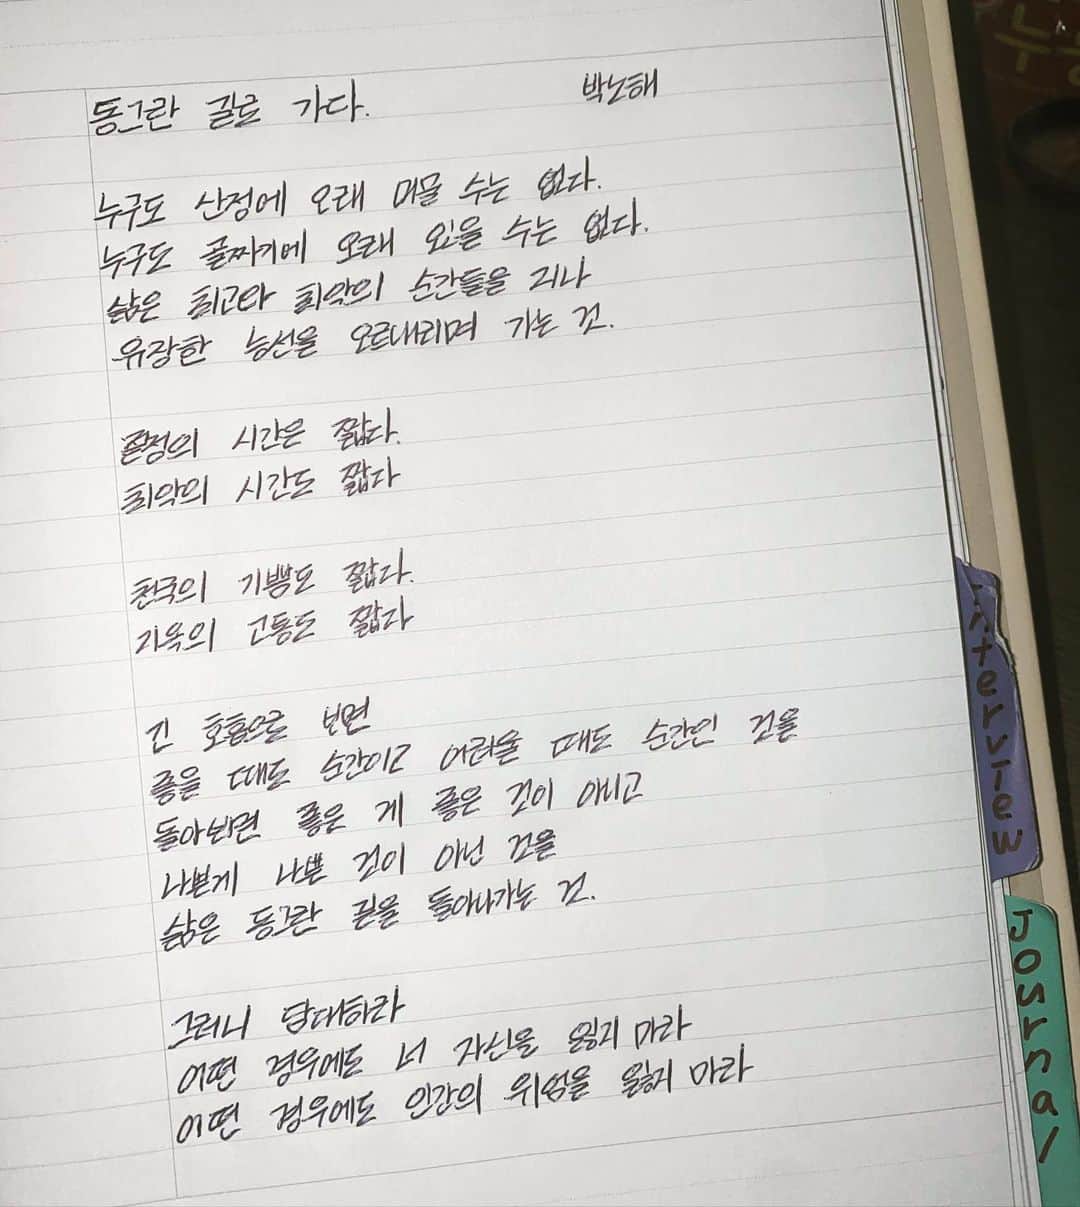 동그란 길로 가다. 박노해
누구도 산정에 오래 머물 수는 없다.
누구도 골짜기에 오래 있을 수는 없다.
삶은 최고와 최악의 순간들을 지나
유장한 능선을 오르내리며 가는 것.
절정의 시간은 짧다.
최악의 시간도 짧다
천국의 기쁨도 짧다.
지옥의 고통도 짧다
긴 호흡으로 보면
좋을 때도 순간이고 어려울 때도 순간인 것을
돌아보면 좋은 게 좋은 것이 아니고
나쁜게 나쁜 것이 아닌 것을
삶은 동그란 길을 돌아나가는 것.
그러니 담대하라
어떤 경우에도 너 자신을 잃지 마라
어떤 경우에도 인간의 위엄을 잃지 마라
Interview
Journal